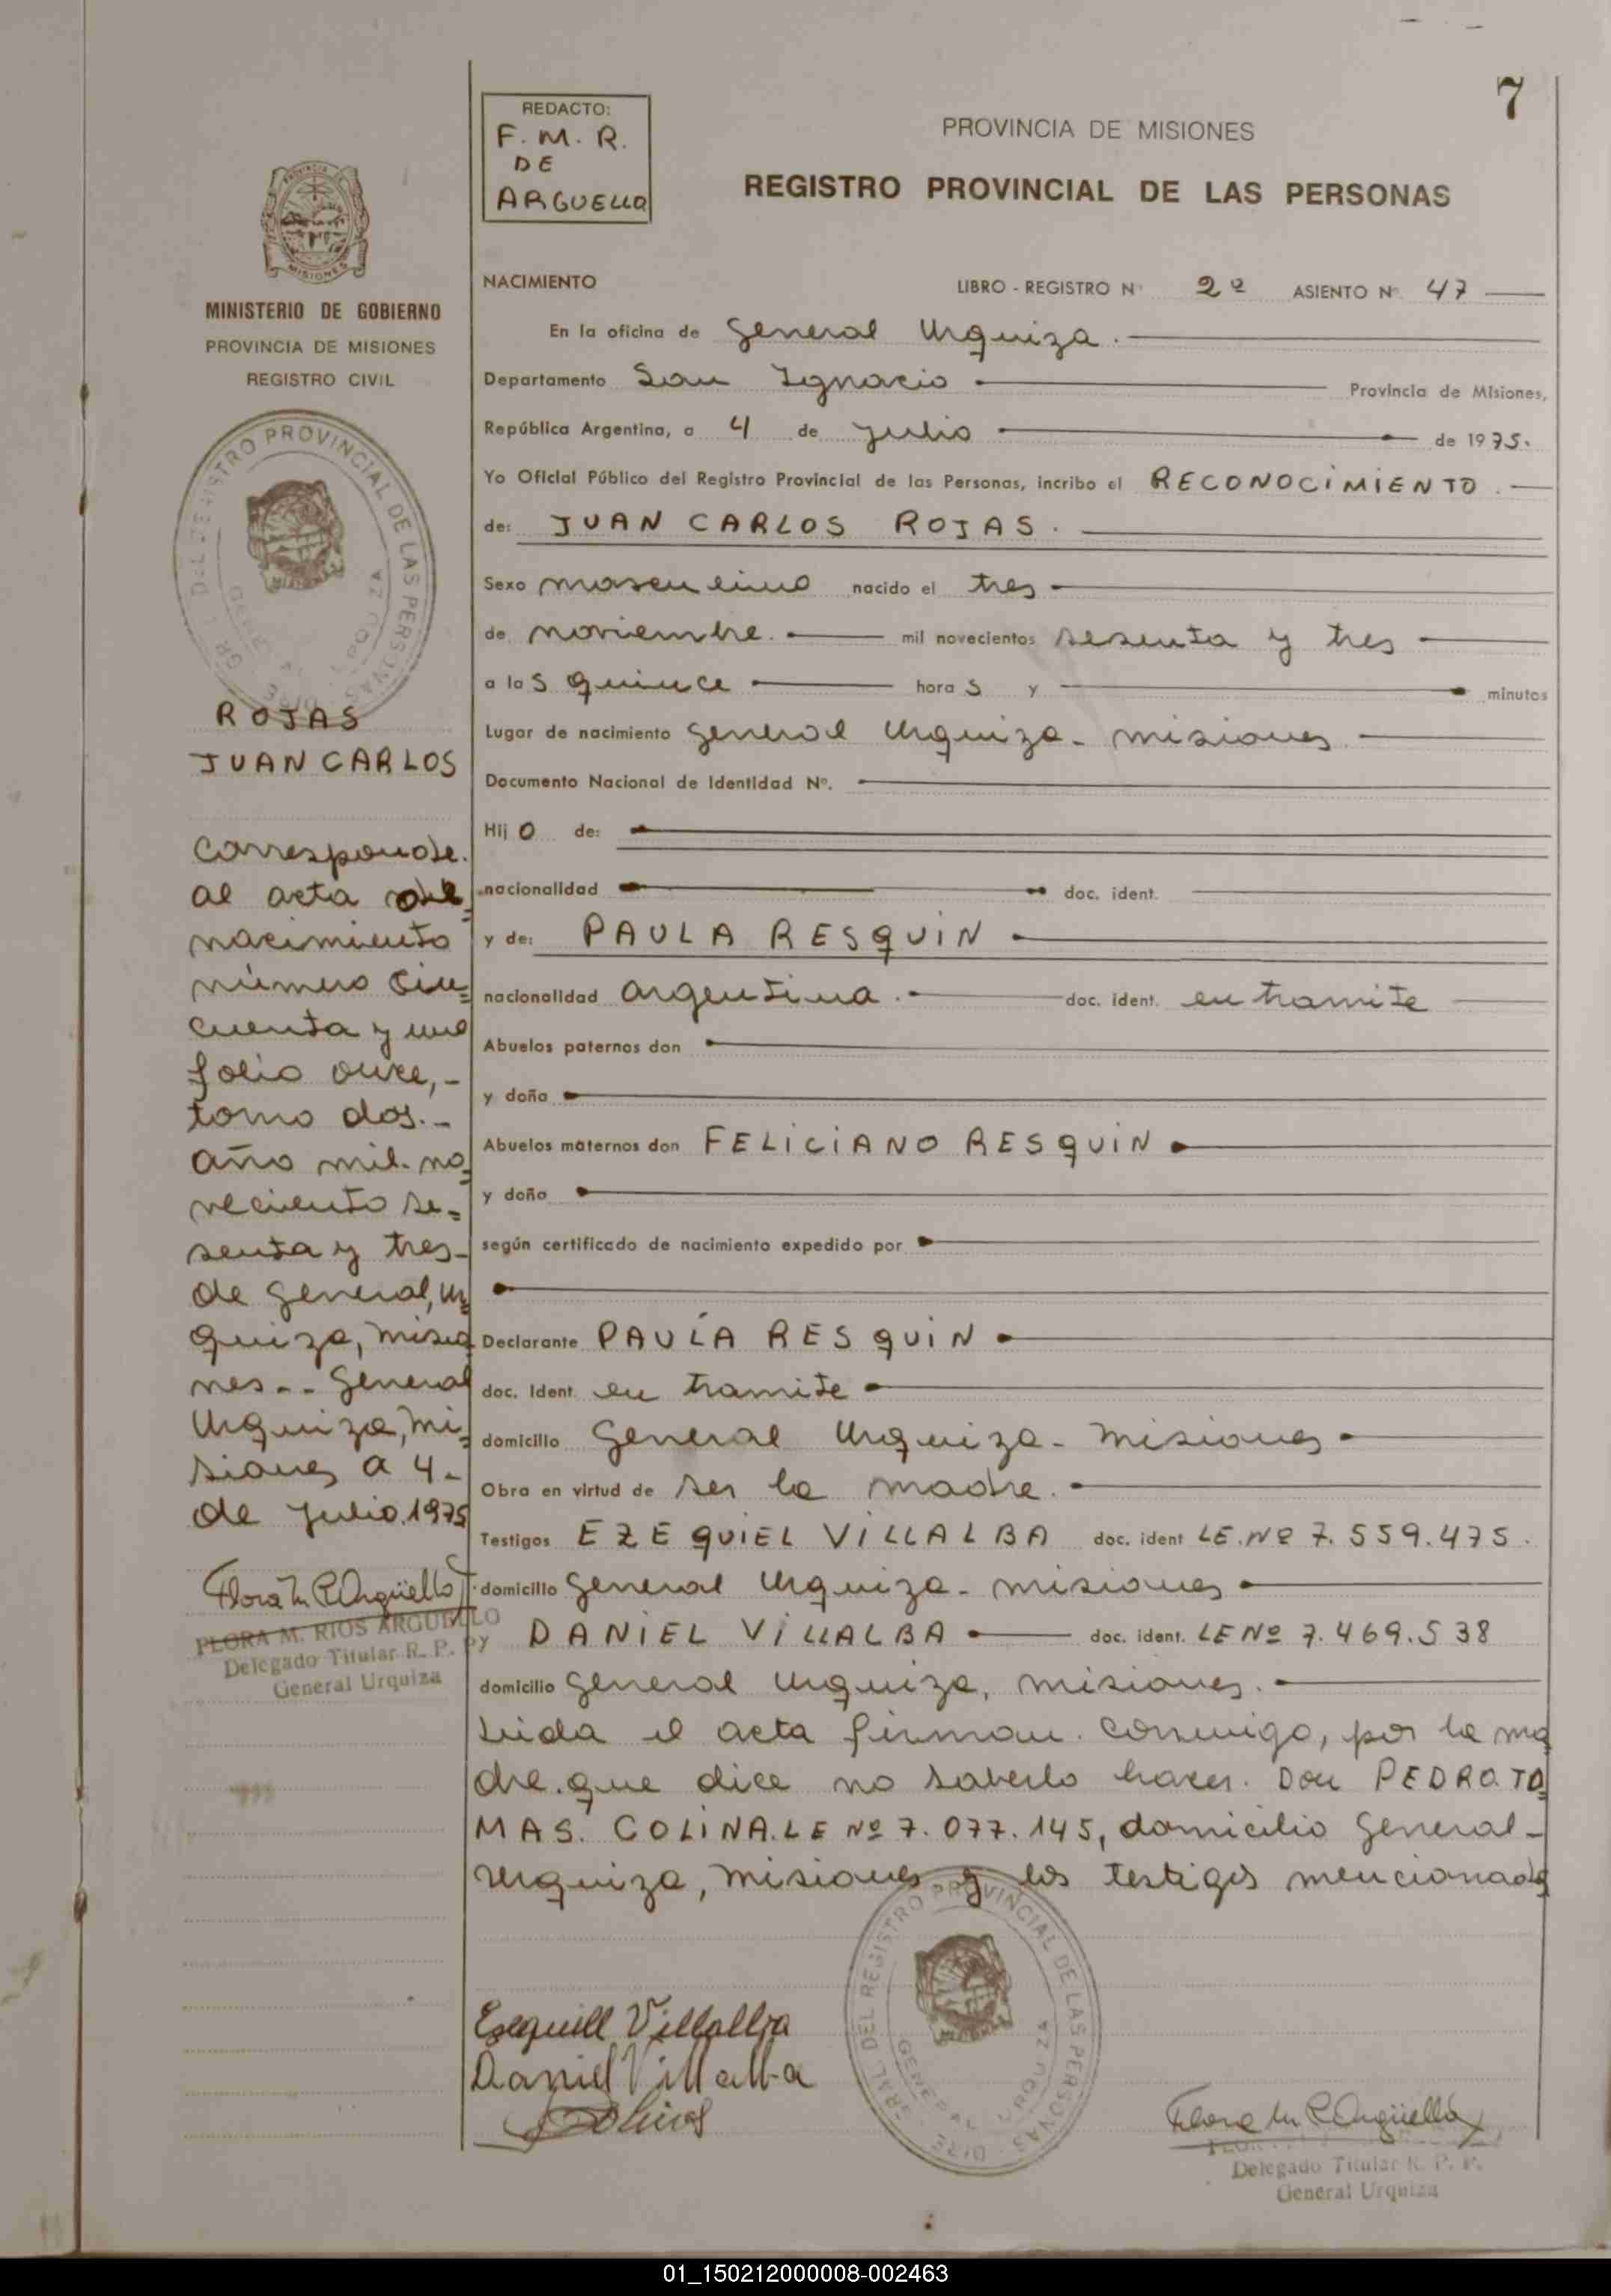 7
REDACTO:
F. M. R.
DE
ARGUELLO
PROVINCIA DE MISIONES
REGISTRO PROVINCIAL DE LAS PERSONAS
MISIONES
MINISTERIO DE GOBIERNO
PROVINCIA DE MISIONES
REGISTRO CIVIL
ROJAS
JUAN CARLOS
Corresponde.
al acta del
nacimiento
número cin=
cuenta y uno
folio once,-
tomo dos.-
año mil no=
veciento se=
senta y tres-
de general, Ur=
quiza, misio
nes-- General
Urquiza, mi=
siones a 4-
de julio.1975
Flora M R Argüello
FLORA M. RIOS ARGUELLO
Delegado Titular R. P. P.
General Urquiza
NACIMIENTO LIBRO - REGISTRO Nº 2º ASIENTO Nº 47
En la oficina de General Urquiza.
Departamento San Ignacio Provincia de Misiones,
República Argentina, a 4 de julio de 1975.
Yo Oficial Público del Registro Provincial de las Personas, incribo el RECONOCIMIENTO.
de: JUAN CARLOS ROJAS.
Sexo masculino nacido el tres
de noviembre. mil novecientos sesenta y tres
a las quince horas y minutos
Lugar de nacimiento General Urquiza - misiones.
Documento Nacional de Identidad Nº.
Hijo de:
nacionalidad doc. ident.
y de: PAULA RESQUIN
nacionalidad argentina. doc. ident. en tramite
Abuelos paternos don
y doña
Abuelos maternos don FELICIANO RESQUIN
y doña
según certificado de nacimiento expedido por
Declarante PAULA RESQUIN
doc. Ident. en tramite
domicilio General Urquiza - misiones
Obra en virtud de ser la madre.
Testigos EZEQUIEL VILLALBA doc. ident LE.Nº 7.559.475.
domicilio General Urquiza - misiones
y DANIEL VILLALBA doc. ident. LE Nº 7.469.538
domicilio General Urquiza, misiones.
Leida el acta firman. conmigo, por la ma
dre.que dice no saberlo hacer. Don PEDRO.TO=
MAS. COLINA.LE Nº 7.077.145, domicilio General-
Urquiza, misiones y los testigos mencionados
Esequiell Villallba
Daniel Villalba
Flora M R Argüello
Delegado Titular R. P. P.
General Urquiza
REGISTRO PROVINCIAL DE LAS PERSONAS
01_150212000008-002463